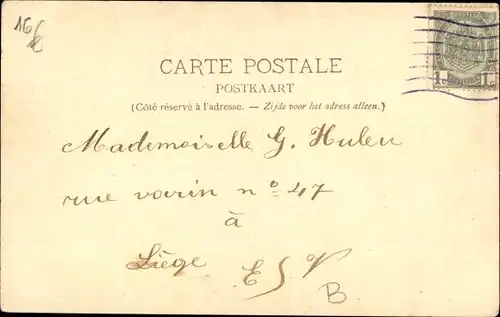 16
CARTE POSTALE
POSTKAART
(Côté réservé à l'adresse. — Zijde voor het adress alleen.)
1c 1c
Mademoiselle G. Hulen
rue varin n° 47
à
Liège E S V
B